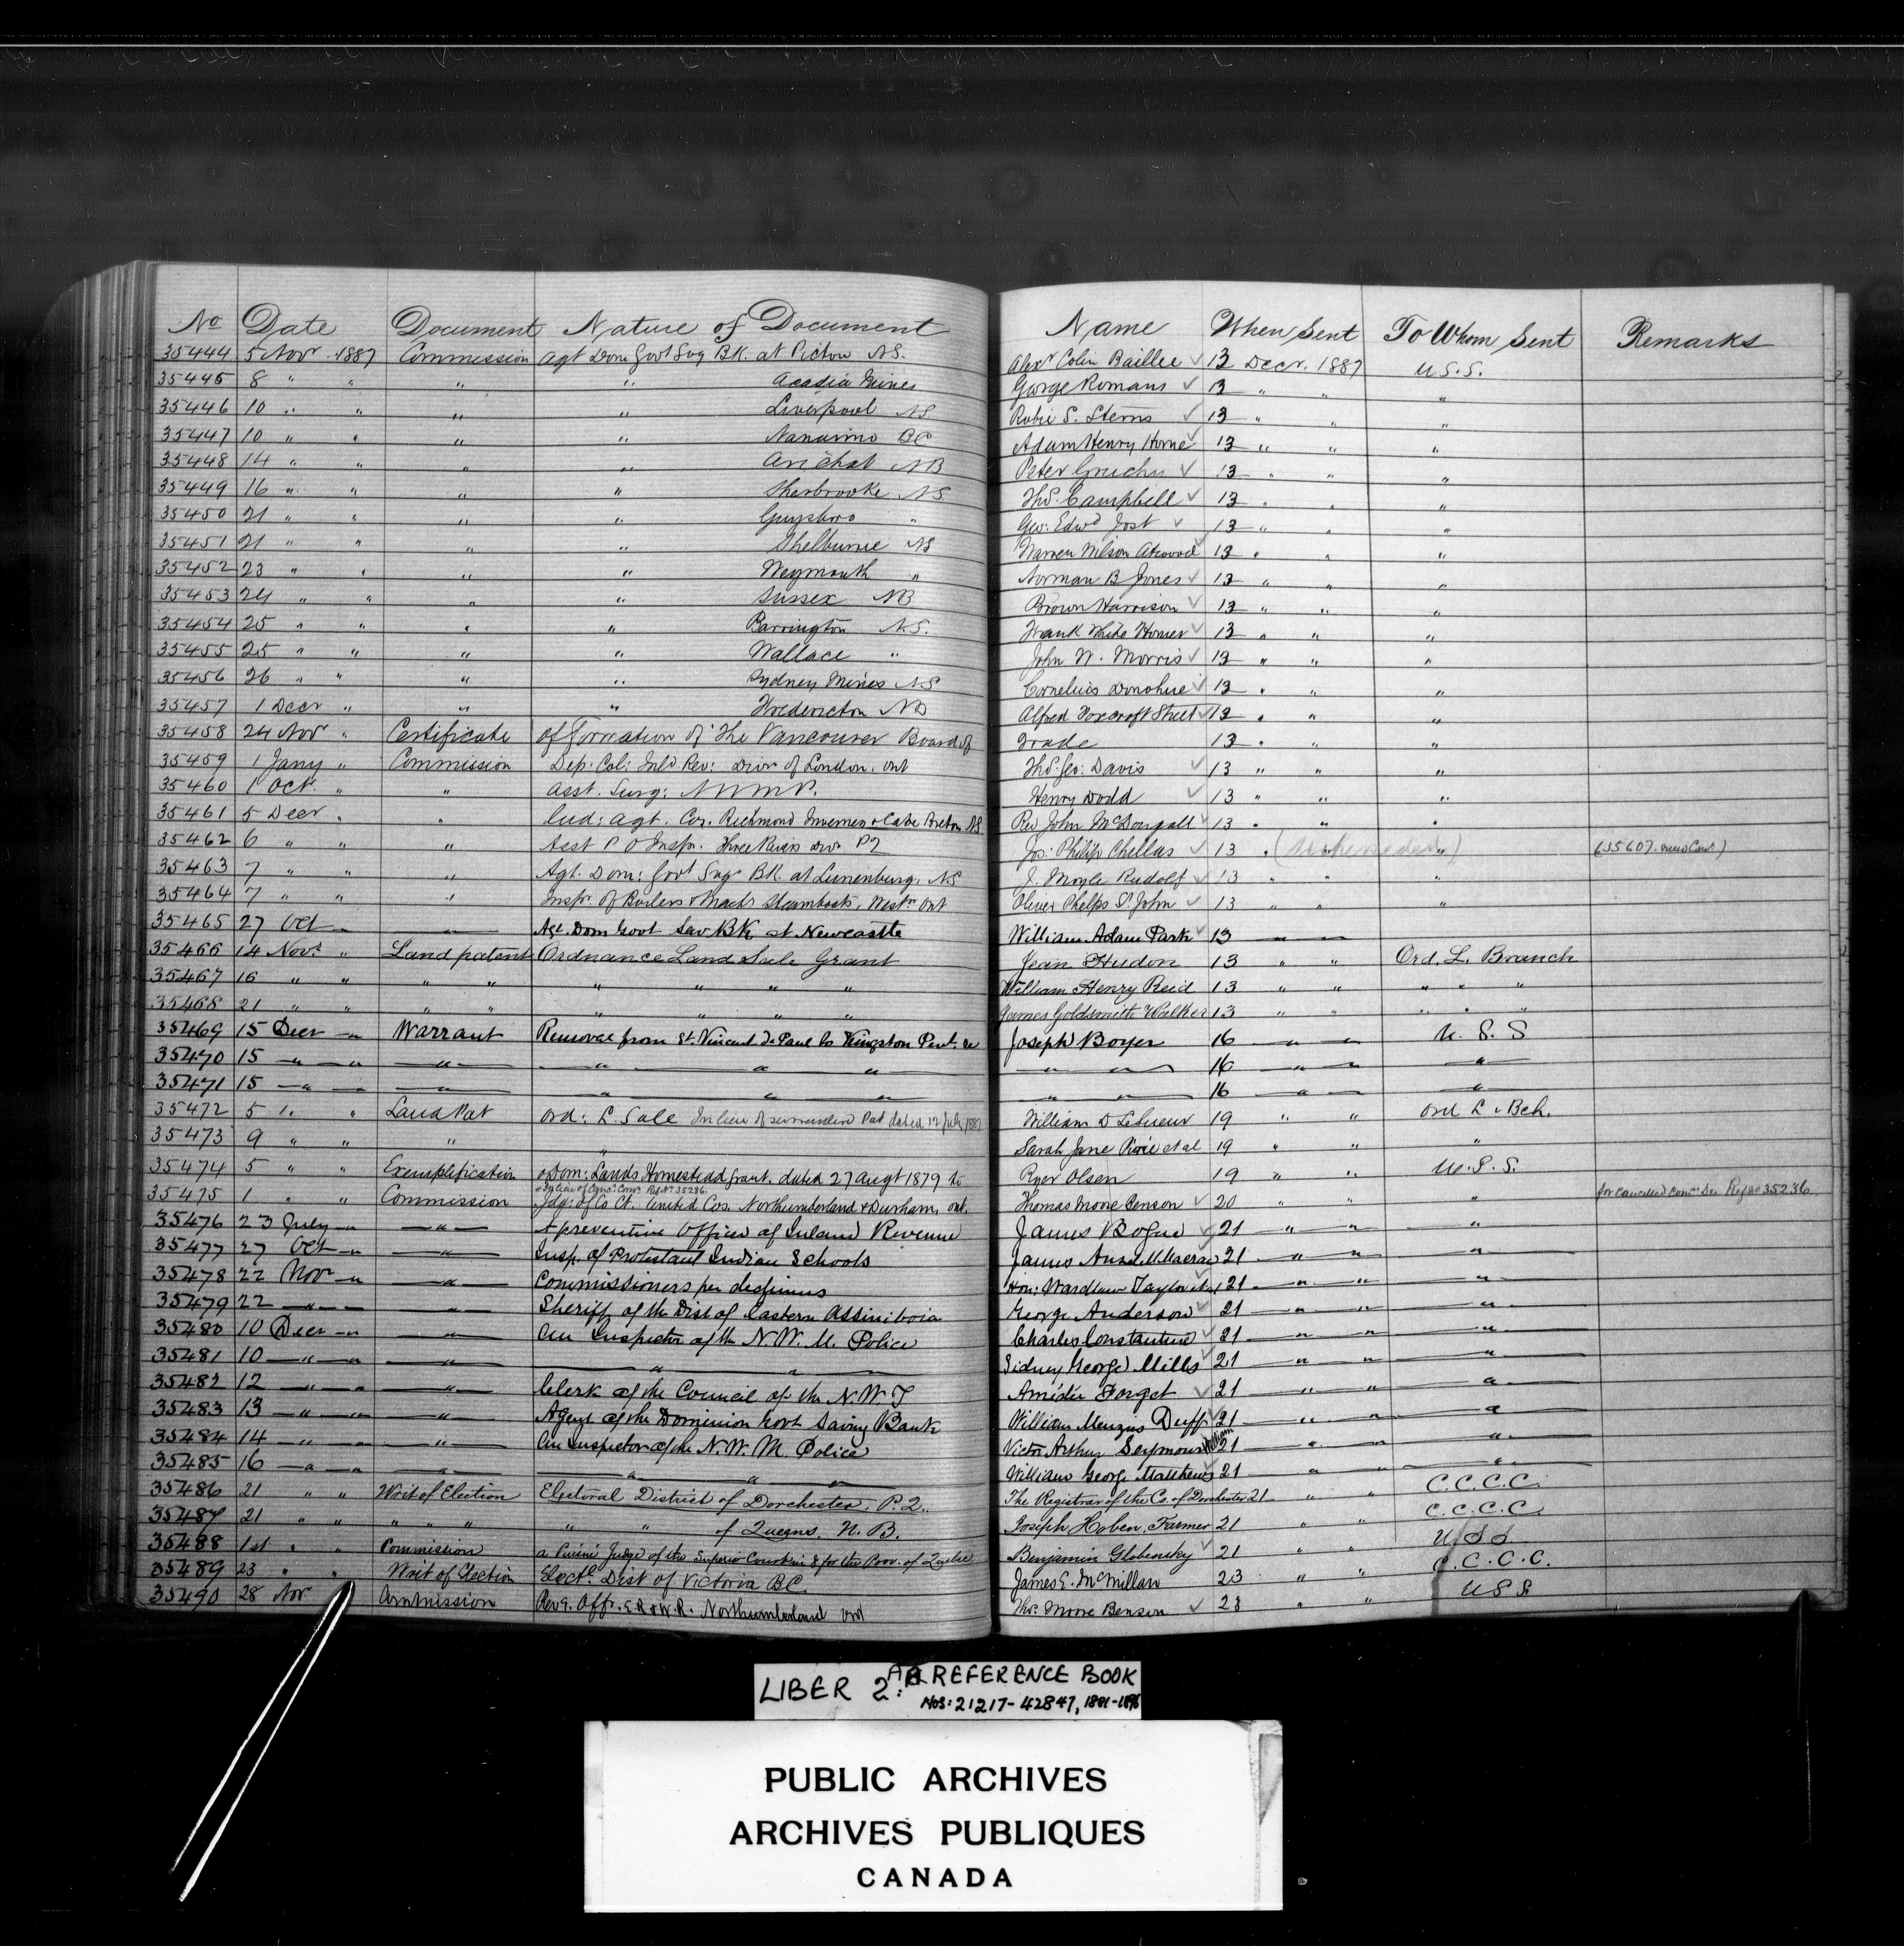 No Date Document Nature of Document Name When Sent To Whom Sent Remarks
35444 5 Nov. 1887 Commission Agt Dom Govt Svg BK. at Pictou N.S. Alexr Colin Baillie ✓ 13 Decr. 1887 U.S.S.
35445 8 " " " " Acadia Mines George Romans ✓ 13 " " "
35446 10 " " " " Liverpool NS Robie S. Sterns ✓ 13 " " "
35447 10 " " " " Nanaimo BC Adam Henry Horne ✓ 13 " " "
35448 14 " " " " Arichat NB Peter Gruchy ✓ 13 " " "
35449 16 " " " " Sherbrooke NS Thos. Campbell ✓ 13 " " "
35450 21 " " " " Guysboro " Geo: Edwd Jost ✓ 13 " " "
35451 21 " " " " Shelburne NS Warren Wilson Atwood ✓ 13 " " "
35452 23 " " " " Weymouth " Norman B Jones ✓ 13 " " "
35453 24 " " " " Sussex NB Brown Harrison ✓ 13 " " "
35454 25 " " " " Barrington N.S. Frank White Homer ✓ 13 " " "
35455 25 " " " " Wallace " John W. Morris ✓ 13 " " "
35456 26 " " " " Sydney Mines NS Cornelius Donohue ✓ 13 " " "
35457 1 Decr " " " Fredericton NB Alfred Foxcroft Street ✓ 13 " " "
35458 24 Nov " Certificate of Formation of The Vancouver Board of Trade 13 " " "
35459 1 Jany " Commission Dep: Col: Inld Rev: Divn of London, Ont Thos. Geo: Davis ✓ 13 " " "
35460 1 Oct. " " Asst. Surg: NWMP. Henry Dodd ✓ 13 " " "
35461 5 Decr " " Ind: Agt. Cos. Richmond Inverness & Cape Breton NS Rev John McDougall ✓ 13 " " "
35462 6 " " " Asst P O Insp. Three Rivers Div PQ Jos: Philip Chellas ✓ 13 " (Superseded) " (35607. new Com.)
35463 7 " " " Agt. Dom: Govt Svgs BK. at Lunenburg, NS J. Moyle Rudolf ✓ 13 " " "
35464 7 " " " Inspr. of Boilers & Machy Steamboats, Westn Ont Oliver Phelps St. John ✓ 13 " " "
35465 27 Oct " " Agt. Dom Govt Sav BK at Newcastle William Adam Park ✓ 13 " "
35466 14 Novr " Land patent Ordnance Land Sale Grant Jean Hudon 13 " " Ord. L. Branch
35467 16 " " " " " " " " William Henry Reid 13 " " " " "
35468 21 " " " " " " " " James Goldsmith Walker 13 " " " " "
35469 15 Decr " Warrant Removal from St. Vincent de Paul to Kingston Pent. de Joseph Boyer 16 " " U.S.S
35470 15 " " " " " " " " 16 " " "
35471 15 " " " " " " " " 16 " " "
35472 5 " " Land Pat Ord: L. Sale In lieu of surrendered Pat dated 12 July 1887 William D LeSueur 19 " " Ord L. Bch.
35473 9 " " " " Sarah Jane et al 19 " " "
35474 5 " " Exemplification of Dom: Lands Homestead Grant, dated 27 Augt 1879 to Roer Olsen 19 " " U.S.S.
35475 1 " " Commission In lieu of Canc. Com. Ref No. 35236. Judg: of Co Ct. United Cos. Northumberland & Durham, Ont. Thomas Moore Benson ✓ 20 " " " for cancelled comn See Ref No 35236.
35476 23 July " " A preventive Officer of Inland Revenue James Bogue ✓ 21 " " "
35477 27 Oct " " Insp. of Protestant Indian Schools James Ansdell Macrae 21 " " "
35478 22 Nov " " Commissioners per dedimus Hon: Wardlaw Taylor et al 21 " " "
35479 22 " " " Sheriff of the Dist of Eastern Assiniboia George Anderson ✓ 21 " " "
35480 10 Decr " " An Inspector of the N.W.M. Police Charles Constantine ✓ 21 " " "
35481 10 " " " " " Sidney George Mills ✓ 21 " " "
35482 12 " " " Clerk of the Council of the N.W.T Amédée Forget ✓ 21 " " "
35483 13 " " " Agent of the Dominion Govt Saving Bank William Menzies Duff ✓ 21 " " "
35484 14 " " " An Inspector of the N.W.M. Police Victor Arthur Seymour William 21 " " "
35485 16 " " " " " " William George Matthews 21 " " "
35486 21 " " Writ of Election Electoral District of Dorchester. P.Q. The Registrar of the Co. of Dorchester 21 " " C.C.C.C.
35487 21 " " " " " " " of Queens, N.B. Joseph Hoben, Farmer 21 " " C.C.C.C
35488 1st " " Commission a Puisné Judge of the Superior Court in & for the Prov. of Quebec Benjamin Globensky ✓ 21 " " USS
35489 23 " " Writ of Election Elect: Dist of Victoria BC. James E. McMillan 23 " " C.C.C.C.
35490 28 Nov Commission Revg. Offr. E R & W.R. Northumberland Ont Thos. Moore Benson ✓ 23 " " USS.
LIBER 2A: REFERENCE BOOK
NOS: 21217-42847, 1881-1896
PUBLIC ARCHIVES
ARCHIVES PUBLIQUES
CANADA